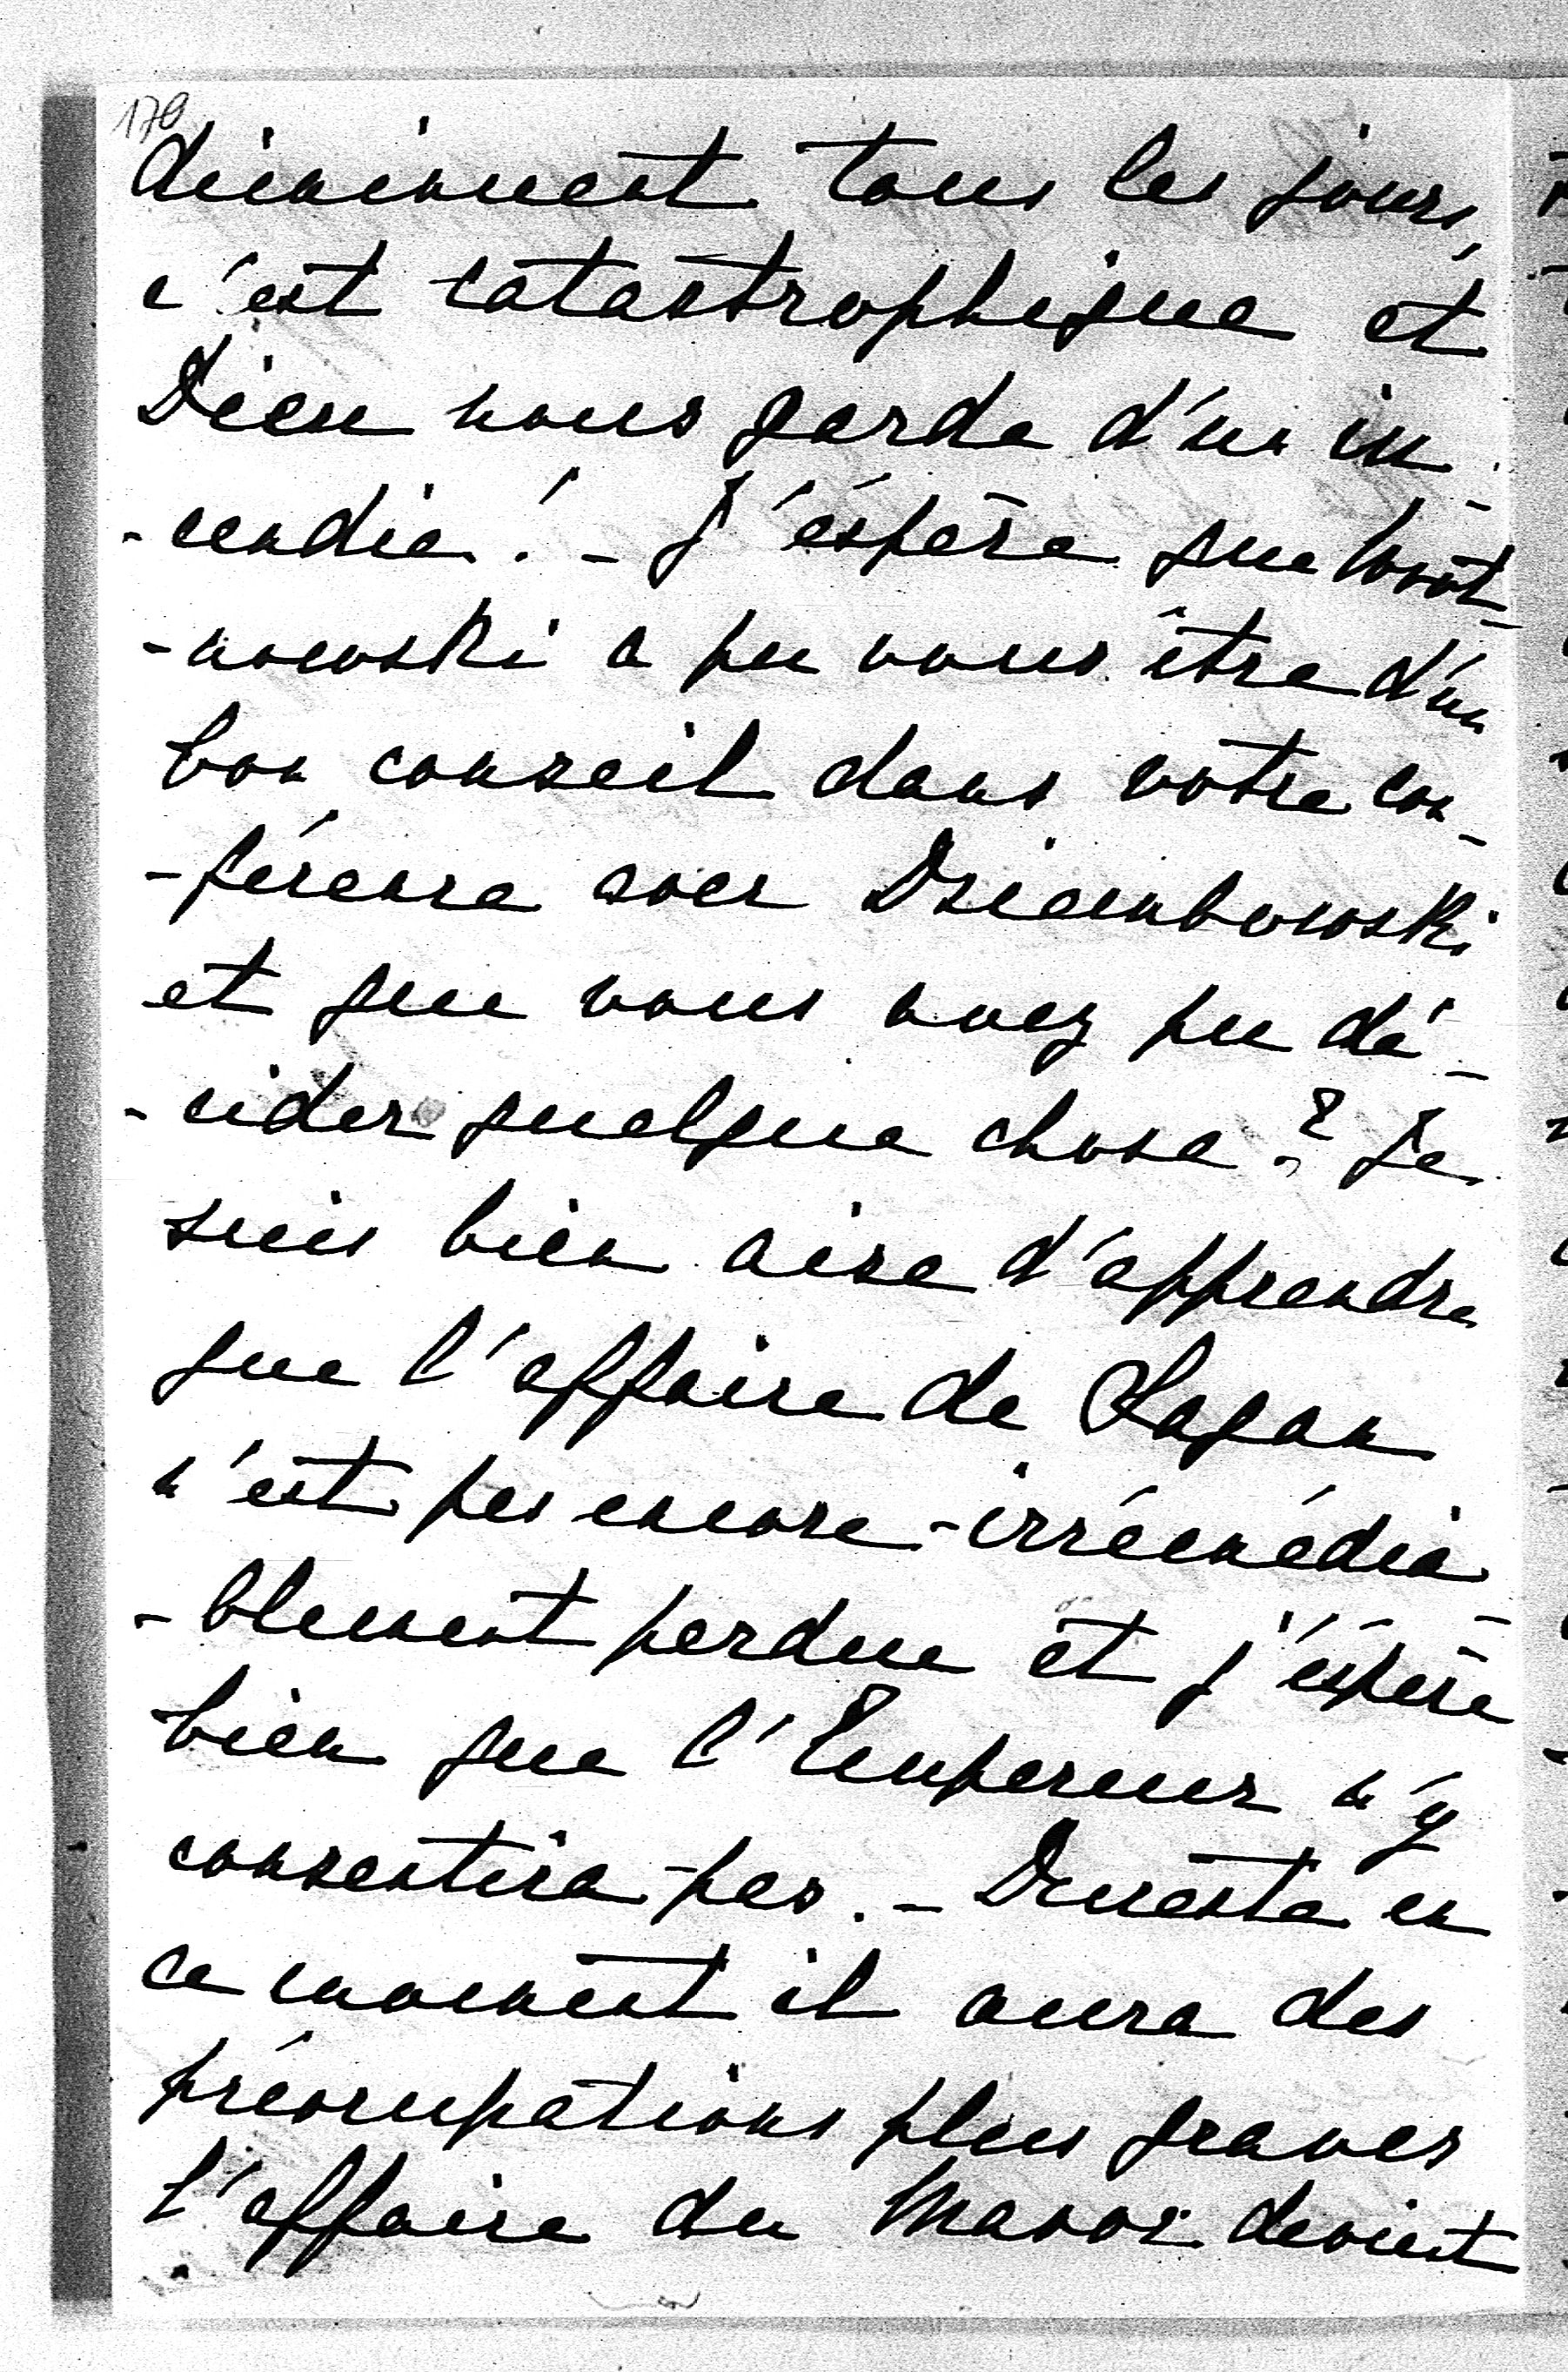 170
diminuent tous les jours,
c'est catastrophique et
Dieu nous garde d'un in-
-cendie! - J'éspère que Woït-
-nowski a pu vous être d'un
bon conseil dans votre con-
-férence avec Dziembowski
et que vous avez pu dé-
-cider quelque chose? Je
suis bien aise d'apprendre
que l'affaire de Sagan
n'est pas encore irrémédia-
-blement perdue et j'éspère
bien que l'Empereur n'y
consentira pas. - Dureste en
ce moment il aura des
préocupations plus graves
l'affaire du Maroc devient